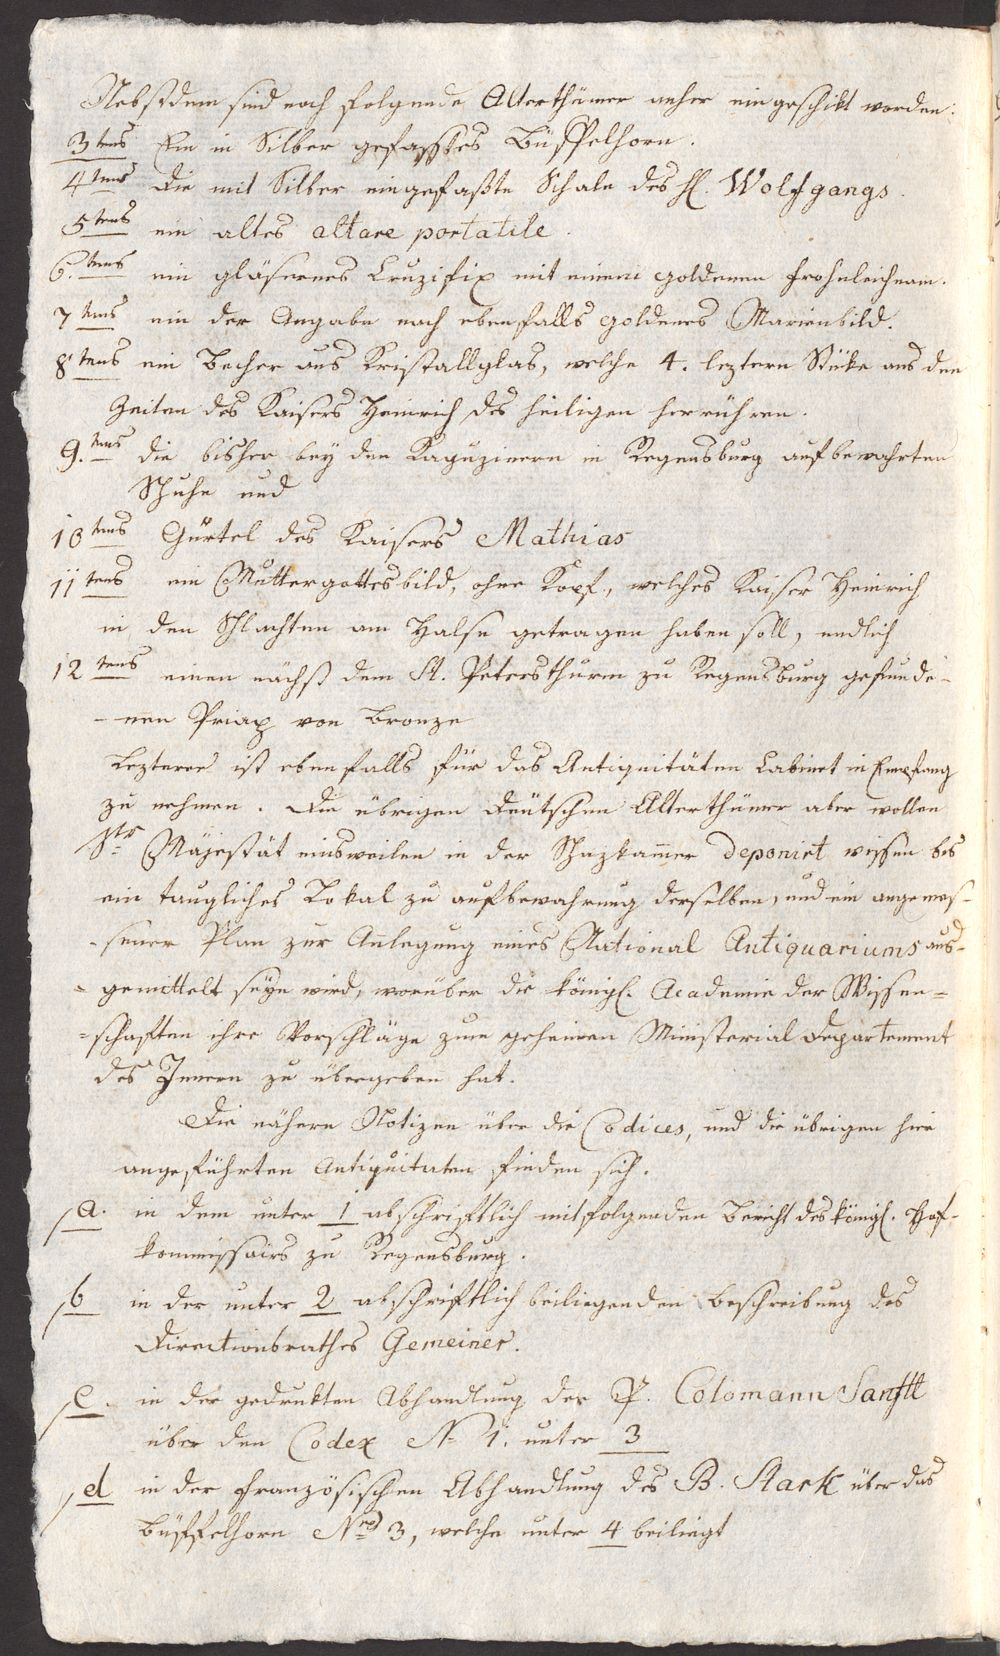 Nebstdem sind noch folgende Alterthümer anher eingeschikt worden:
3tens Ein in Silber gefasstes Büffelhorn.
4tens Die mit Silber eingefaßte Schale des hl. Wolfgangs
5tens ein altes altare portatile.
6.tens ein gläsernes Cruzifix mit einem goldenen Frohnleichnam.
7tens ein der Angabe nach ebenfalls goldenes Marienbild.
8tens ein Becher aus Kristallglas, welche 4. leztern Stüke aus den
Zeiten des Kaisers Heinrich des heiligen herrühren.
9.tens die bisher bey den Kapuzinern in Regensburg aufbewahrten
Schuhe und
10tens Gürtel des Kaisers Mathias
11tens ein Muttergottesbild, ohne Kopf, welches Kaiser Heinrich
in den Schlachten am Halse getragen haben soll, endlich
12tens einen nächst dem St. Petersthurm zu Regensburg gefunde-
-nen Priap von Bronze
Lezterer ist ebenfalls für das Antiquitäten Cabinet in Empfang
zu nehmen. Die übrigen Deütschen Alterthümer aber wollen
Sr Majestät einsweilen in der Schazkammer deponirt wissen bis
ein taugliches Lokal zu aufbewahrung derselben, und ein angemes-
-sener Plan zur Anlegung eines National Antiquariums aus-
-gemittelt seyn wird, worüber die königl. Academie der Wissen=
=schaften ihre Vorschläge zum geheimen Ministerial Departement
des Innern zu übergeben hat.
Die nähern Notizen über die Codices, und die übrigen hier
angeführten Antiquitaten finden sich.
/a. in dem unter 1 abschriftlich mitfolgenden Bericht des königl. Hof-
kommissairs zu Regensburg.
/b in der unter 2 abschriftlich beiliegenden Beschreibung des
Directionsrathes Gemeiner.
/c. in der gedrukten Abhandlung des P. Colomann Sanftl
über den Codex N. 1. unter 3
/d in der französischen Abhandlung des B. Stark über das
Büffelhorn Nro 3, welche unter 4 beiliegt